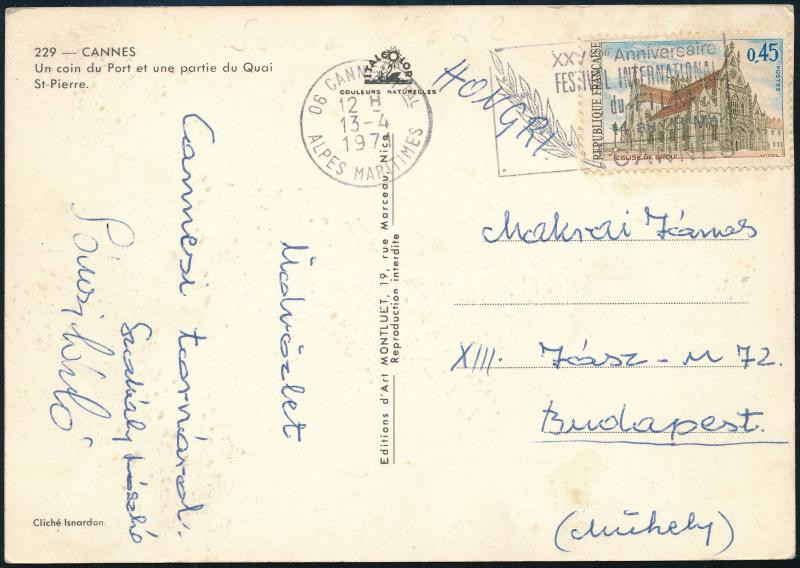 229 — CANNES
Un coin du Port et une partie du Quai
St-Pierre.
ITALCOLOR
COULEURS NATURELLES
06 CANNES
12 H
13-4
197
ALPES MARITIMES
HONGRI
XXVe Anniversaire
FESTIVAL INTERNATIONAL
du FILM
CANNES
0,45
POSTES
REPUBLIQUE FRANÇAISE
EGLISE DE BROU
Üdvözlet
Cannesi tornáról.
Szabály László
Makrai János
XIII. Jász-u 72.
Budapest.
(Műhely)
Editions d'Art MONTLUET, 19, rue Marceau, Nice
Reproduction interdite
Cliché Isnardon.